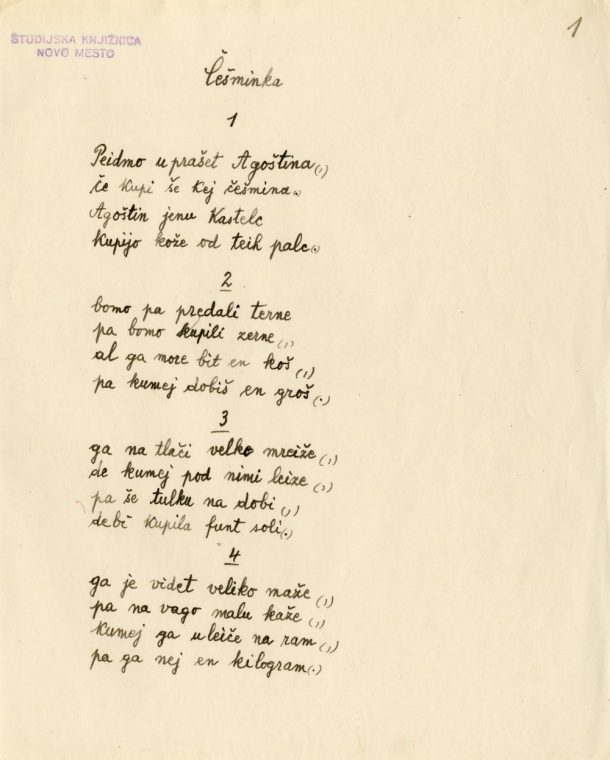 1
ŠTUDIJSKA KNJIŽNICA
NOVO MESTO
Češminka
1
Peidmo uprašet Agoština(,)
če kupi še kej češmina.
Agoštin jenu Kastelc
kupijo kože od teih palc.
2
bomo pa prędali terne
pa bomo kupili zerne(,)
al ga more bit en koš(,)
pa kumej dobiš en groš(.)
3
ga na tlači velke mreiže(,)
de kumej pod nimi leize(,)
pa še tulku na dobi(,)
de bi kupila funt soli(.)
4
ga je videt veliko maže(,)
pa na vago malu kaže(,)
kumej ga uleiče na ram(,)
pa ga nej en kilogram(.)